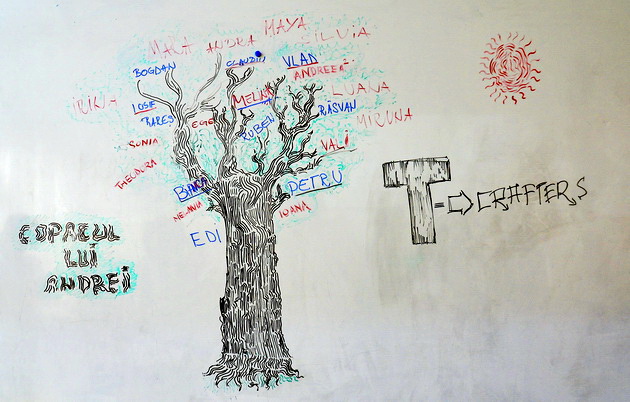 MARA ANDRA MAYA SILVIA
BOGDAN CLAUDIU VLAD
ANDREEA
IRINA IOSIF MELINA LUANA
RAREȘ EGE RUBEN RĂSVAN MIRUNA
SONIA VALI
THEODORA
BIANCA PETRU
MELANIA IOANA
EDI
COPACUL
LUI
ANDREI
T=>CRAFTERS